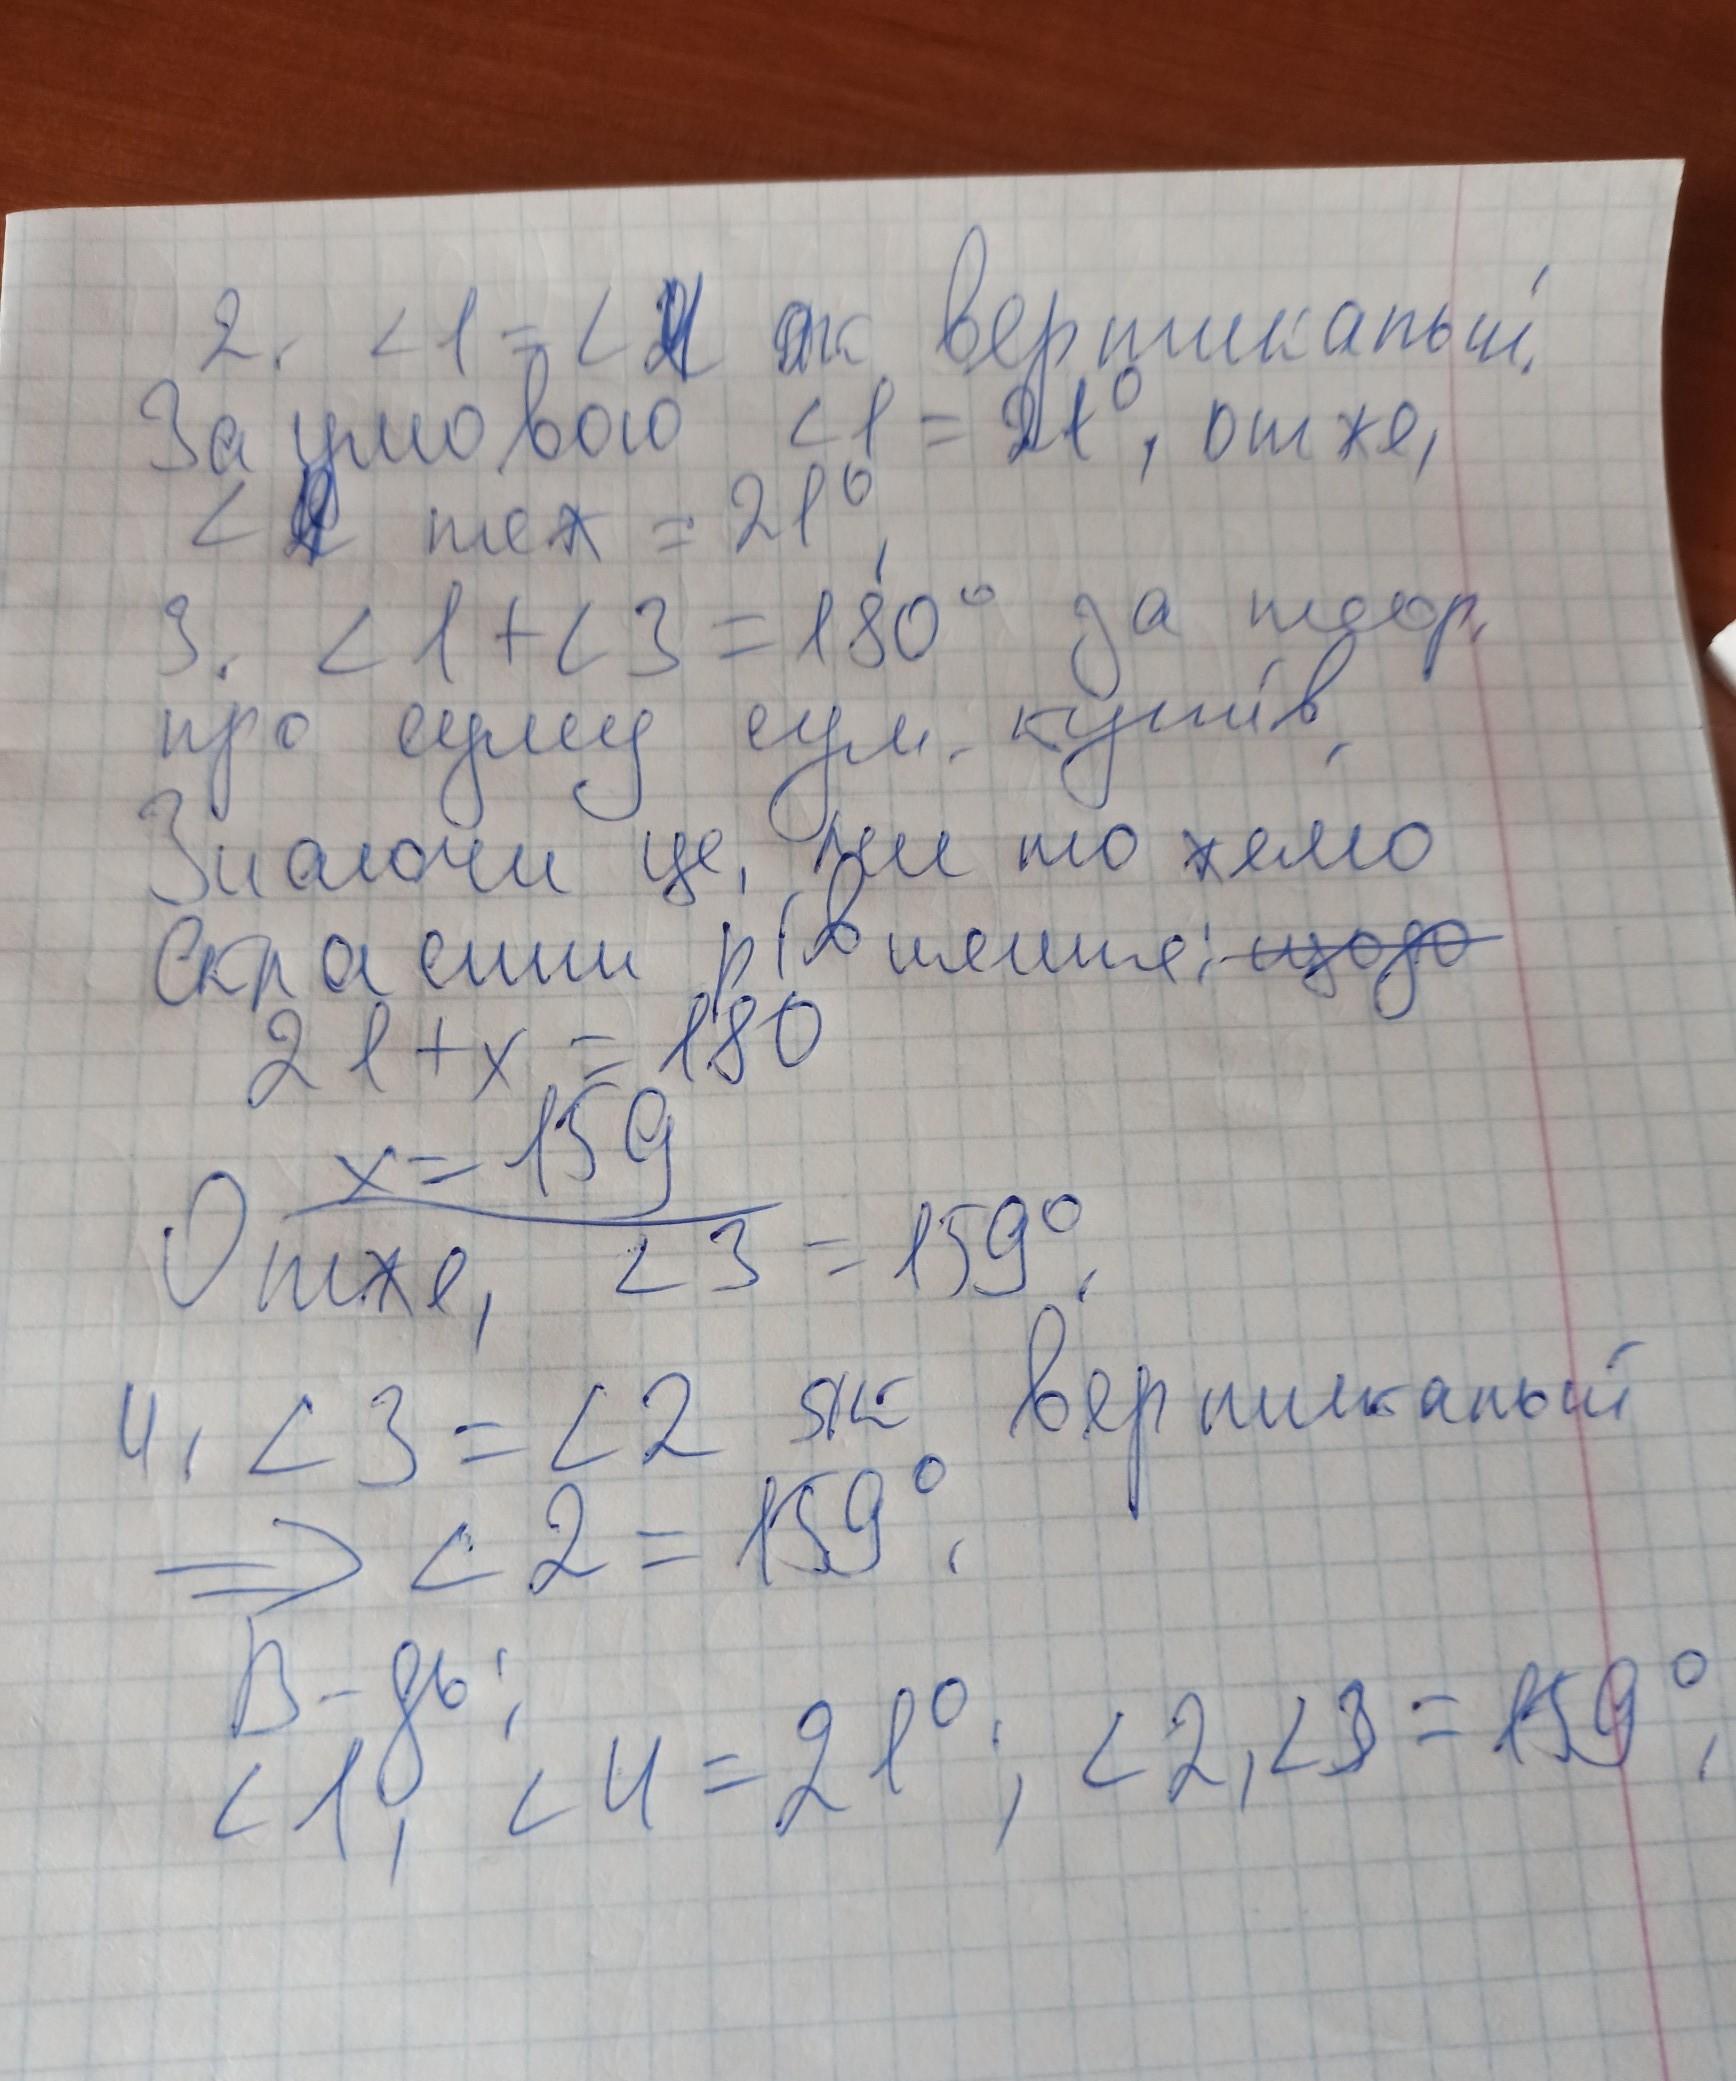 2. <1 = <4 як вертикальні.
За умовою <1 = 21°, отже,
<4 теж = 21°.
3. <1 + <3 = 180° за теор.
про суму сум. кутів.
Знаючи це, ми можемо
скласти рівняння: щодо
21 + x = 180
x = 159
Отже, <3 = 159°.
4. <3 = <2 як вертикальні
⇒ <2 = 159°.
В-дь:
<1, <4 = 21°; <2, <3 = 159°.